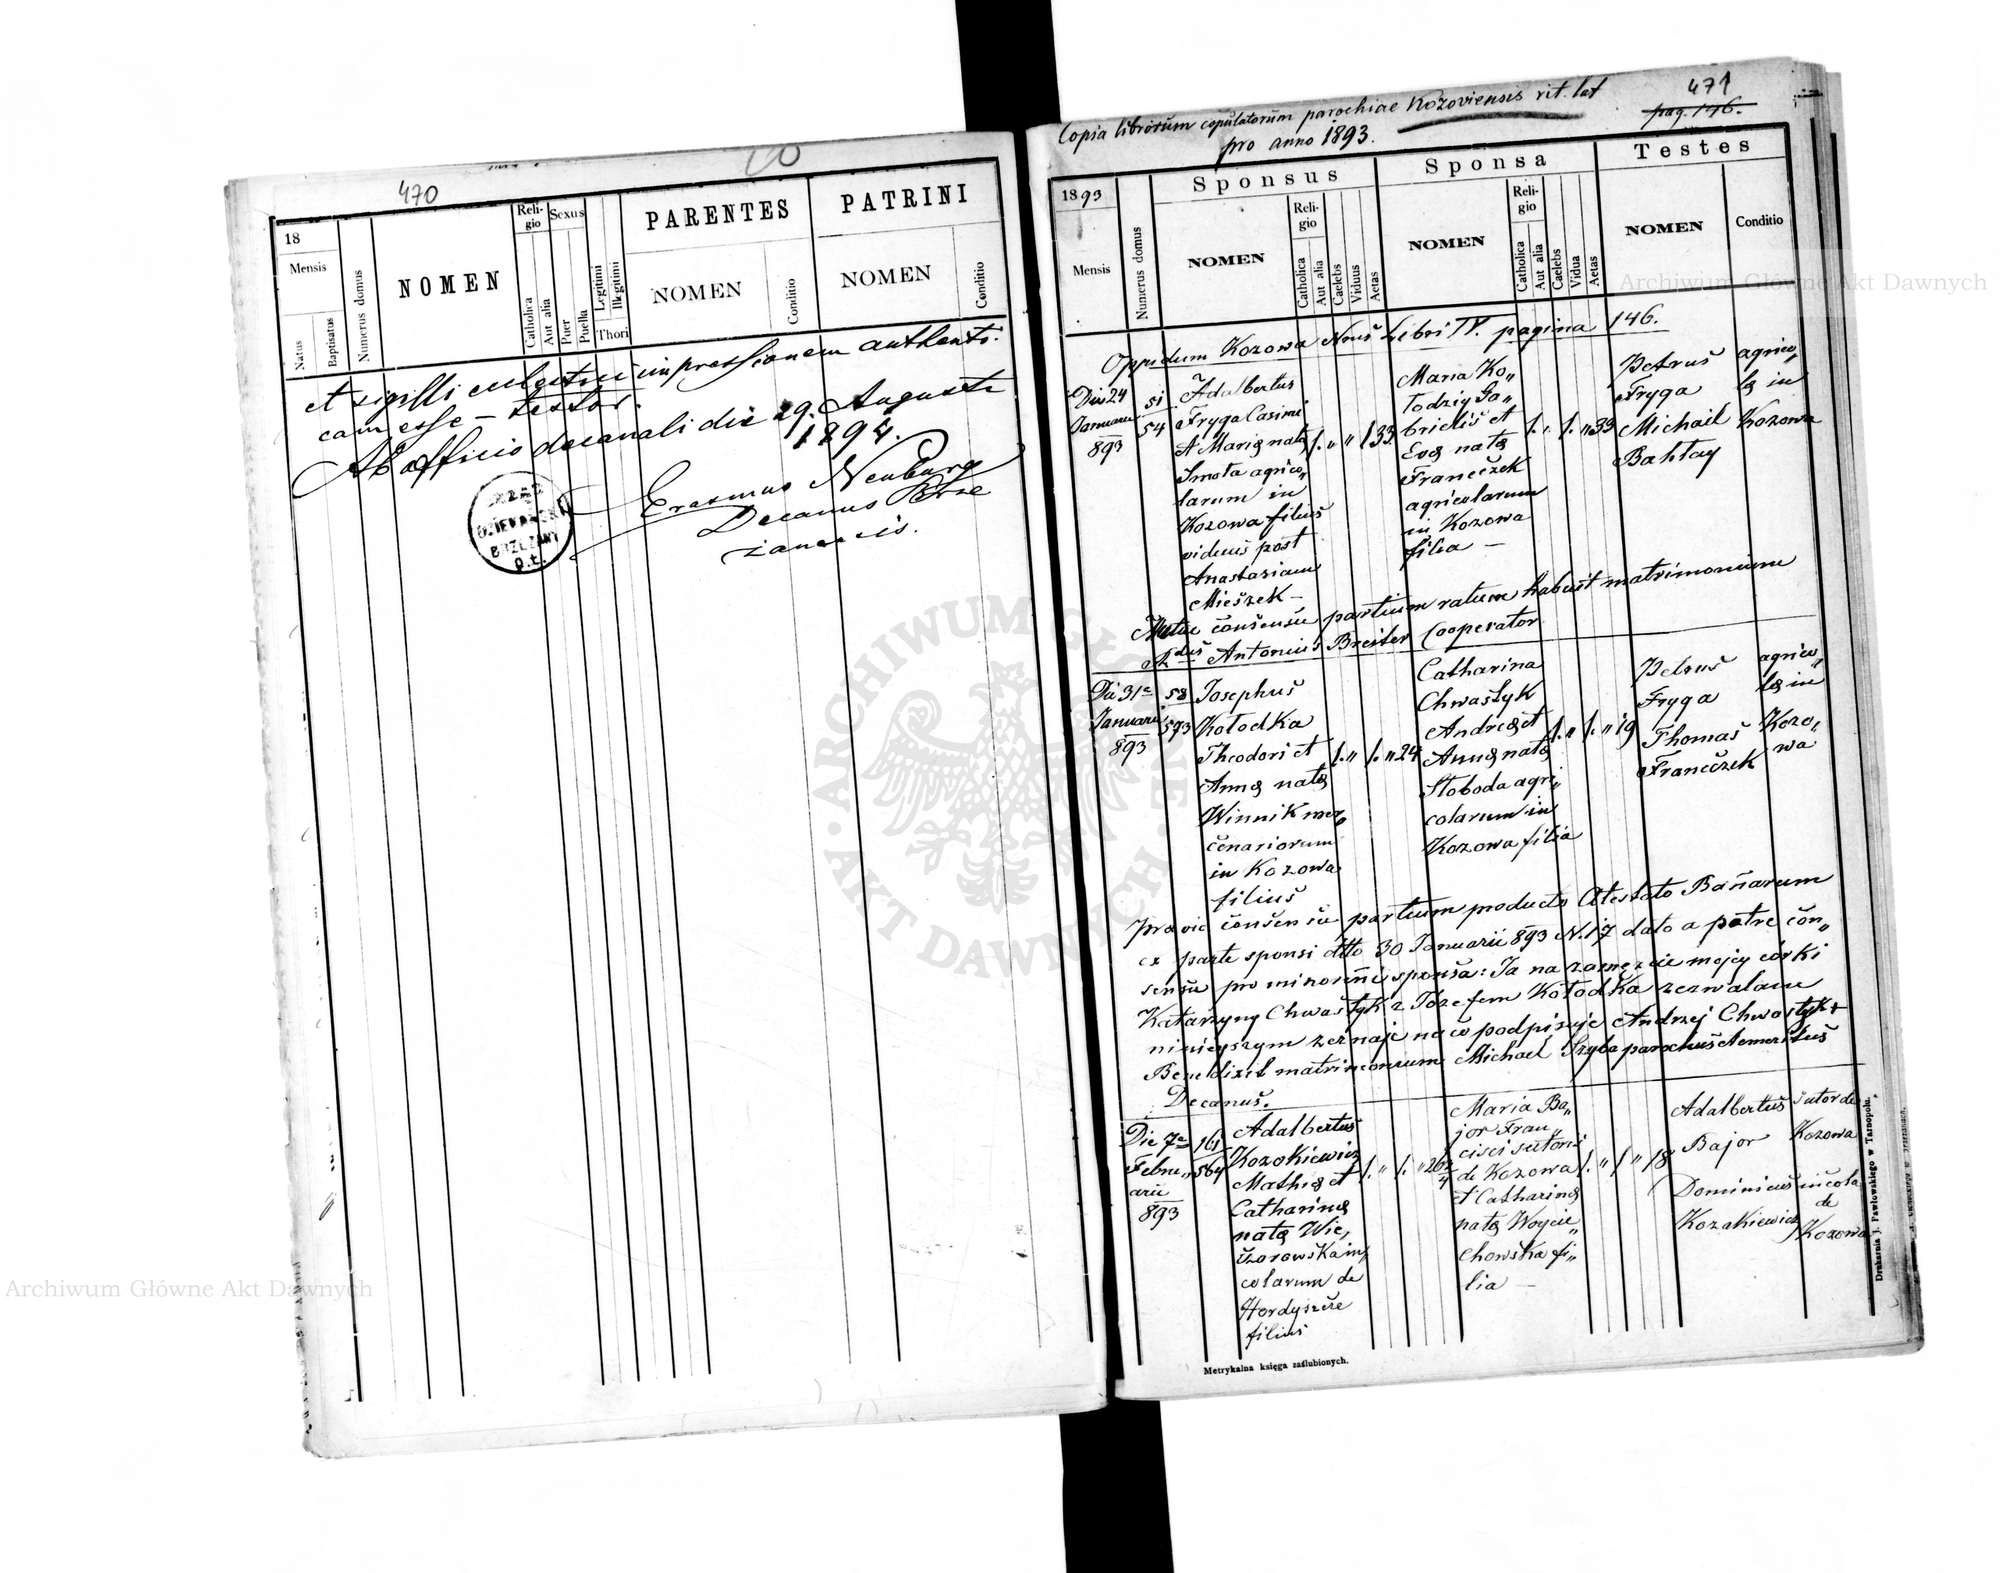 470
18
Mensis
Natus
Baptisatus
Numerus domus
NOMEN
Religio
Catholica
Aut alia
Sexus
Puer
Puella
Legitimi
Illegitimi
Thori
PARENTES
NOMEN
Conditio
PATRINI
NOMEN
Conditio
et sigilli impressionem authenti-
cam esse – testor.
Ab officio decanali die 29. Augusti
1894.
Erasmus Neuburg
Decanus Brze
zanensis.
URZĄD
DZIEKAŃSKI
BRZEŻANY
o.ł.
Copia librorum copulatorum parochiae Kozoviensis rit. lat
pro anno 1893.
471
pag. 146.
1893
Mensis
Numerus domus
Sponsus
NOMEN
Religio
Catholica
Aut alia
Caelebs
Viduus
Aetas
Sponsa
NOMEN
Religio
Catholica
Aut alia
Caelebs
Vidua
Aetas
Testes
NOMEN
Conditio
Oppidum Kozowa Libri IV. pagina 146.
Die 24
Januarii
893
51
54
Adalbertus
Fryga Casimi
et Mariae natae
Smota agrico„
larum in
Kozowa filius
viduus post
Anastasiam
Mieszek –
1. „ „ 1 33
Maria Ko„
łodziy Ga„
brielis et
Evae natae
Franczek
agricolarum
in Kozowa
filia –
1. „ 1. „ 33
Petrus
Fryga
Michael
Bahtay
agrico„
lae in
Kozowa
consensu partium ratum habuit matrimonium
Antonius Breiter Cooperator
Die 31a
Januarii
893
58
593
Josephus
Kołodka
Theodori et
Annae natae
Winnik mer„
cenariorum
in Kozowa
filius
1. „ 1. „ 24
Catharina
Chwastyk
Andreae et
Annae natae
Słoboda agri„
colarum in
Kozowa filia
1. „ 1. „ 19
Petrus
Fryga
Thomas
Franczek
agrico„
lae in
Kozo„
wa
Praevio consensu partium producto Atestato Banarum
ex parte sponsi dtto 30 Januarii 893 N. 17 dato a patre con„
sensu pro minorenni sponsa: Ja na zamęzcie mojej córki
Katarzyny Chwastyk z Józefem Kołodka zezwalam
niniejszym zeznaję na co podpisuję Andrzej Chwastyk +
Benedixit matrimonium Michael Szyba parochus et emeritus
Decanus.
Die 7a
Febru„
arii
893
161
564
Adalbertus
Kozakiewicz
Mathiae et
Catharinae
natae Wie„
czorowska in„
colarum de
Hordyszcze
filius
1. „ 1. „ 26 2/4
Maria Ba„
jor Fran„
cisci sutoris
de Kozowa
et Catharinae
natae Woycie„
chowska fi„
lia –
1. „ 1 „ 18
Adalbertus
Bajor
Dominicus
Kozakiewicz
sutor de
Kozowa
incola
de
Kozowa
Metrykalna księga zaślubionych.
Drukarnia J. Pawłowskiego w Tarnopolu.
Archiwum Główne Akt Dawnych
Archiwum Główne Akt Dawnych
ARCHIWUM GŁÓWNE AKT DAWNYCH